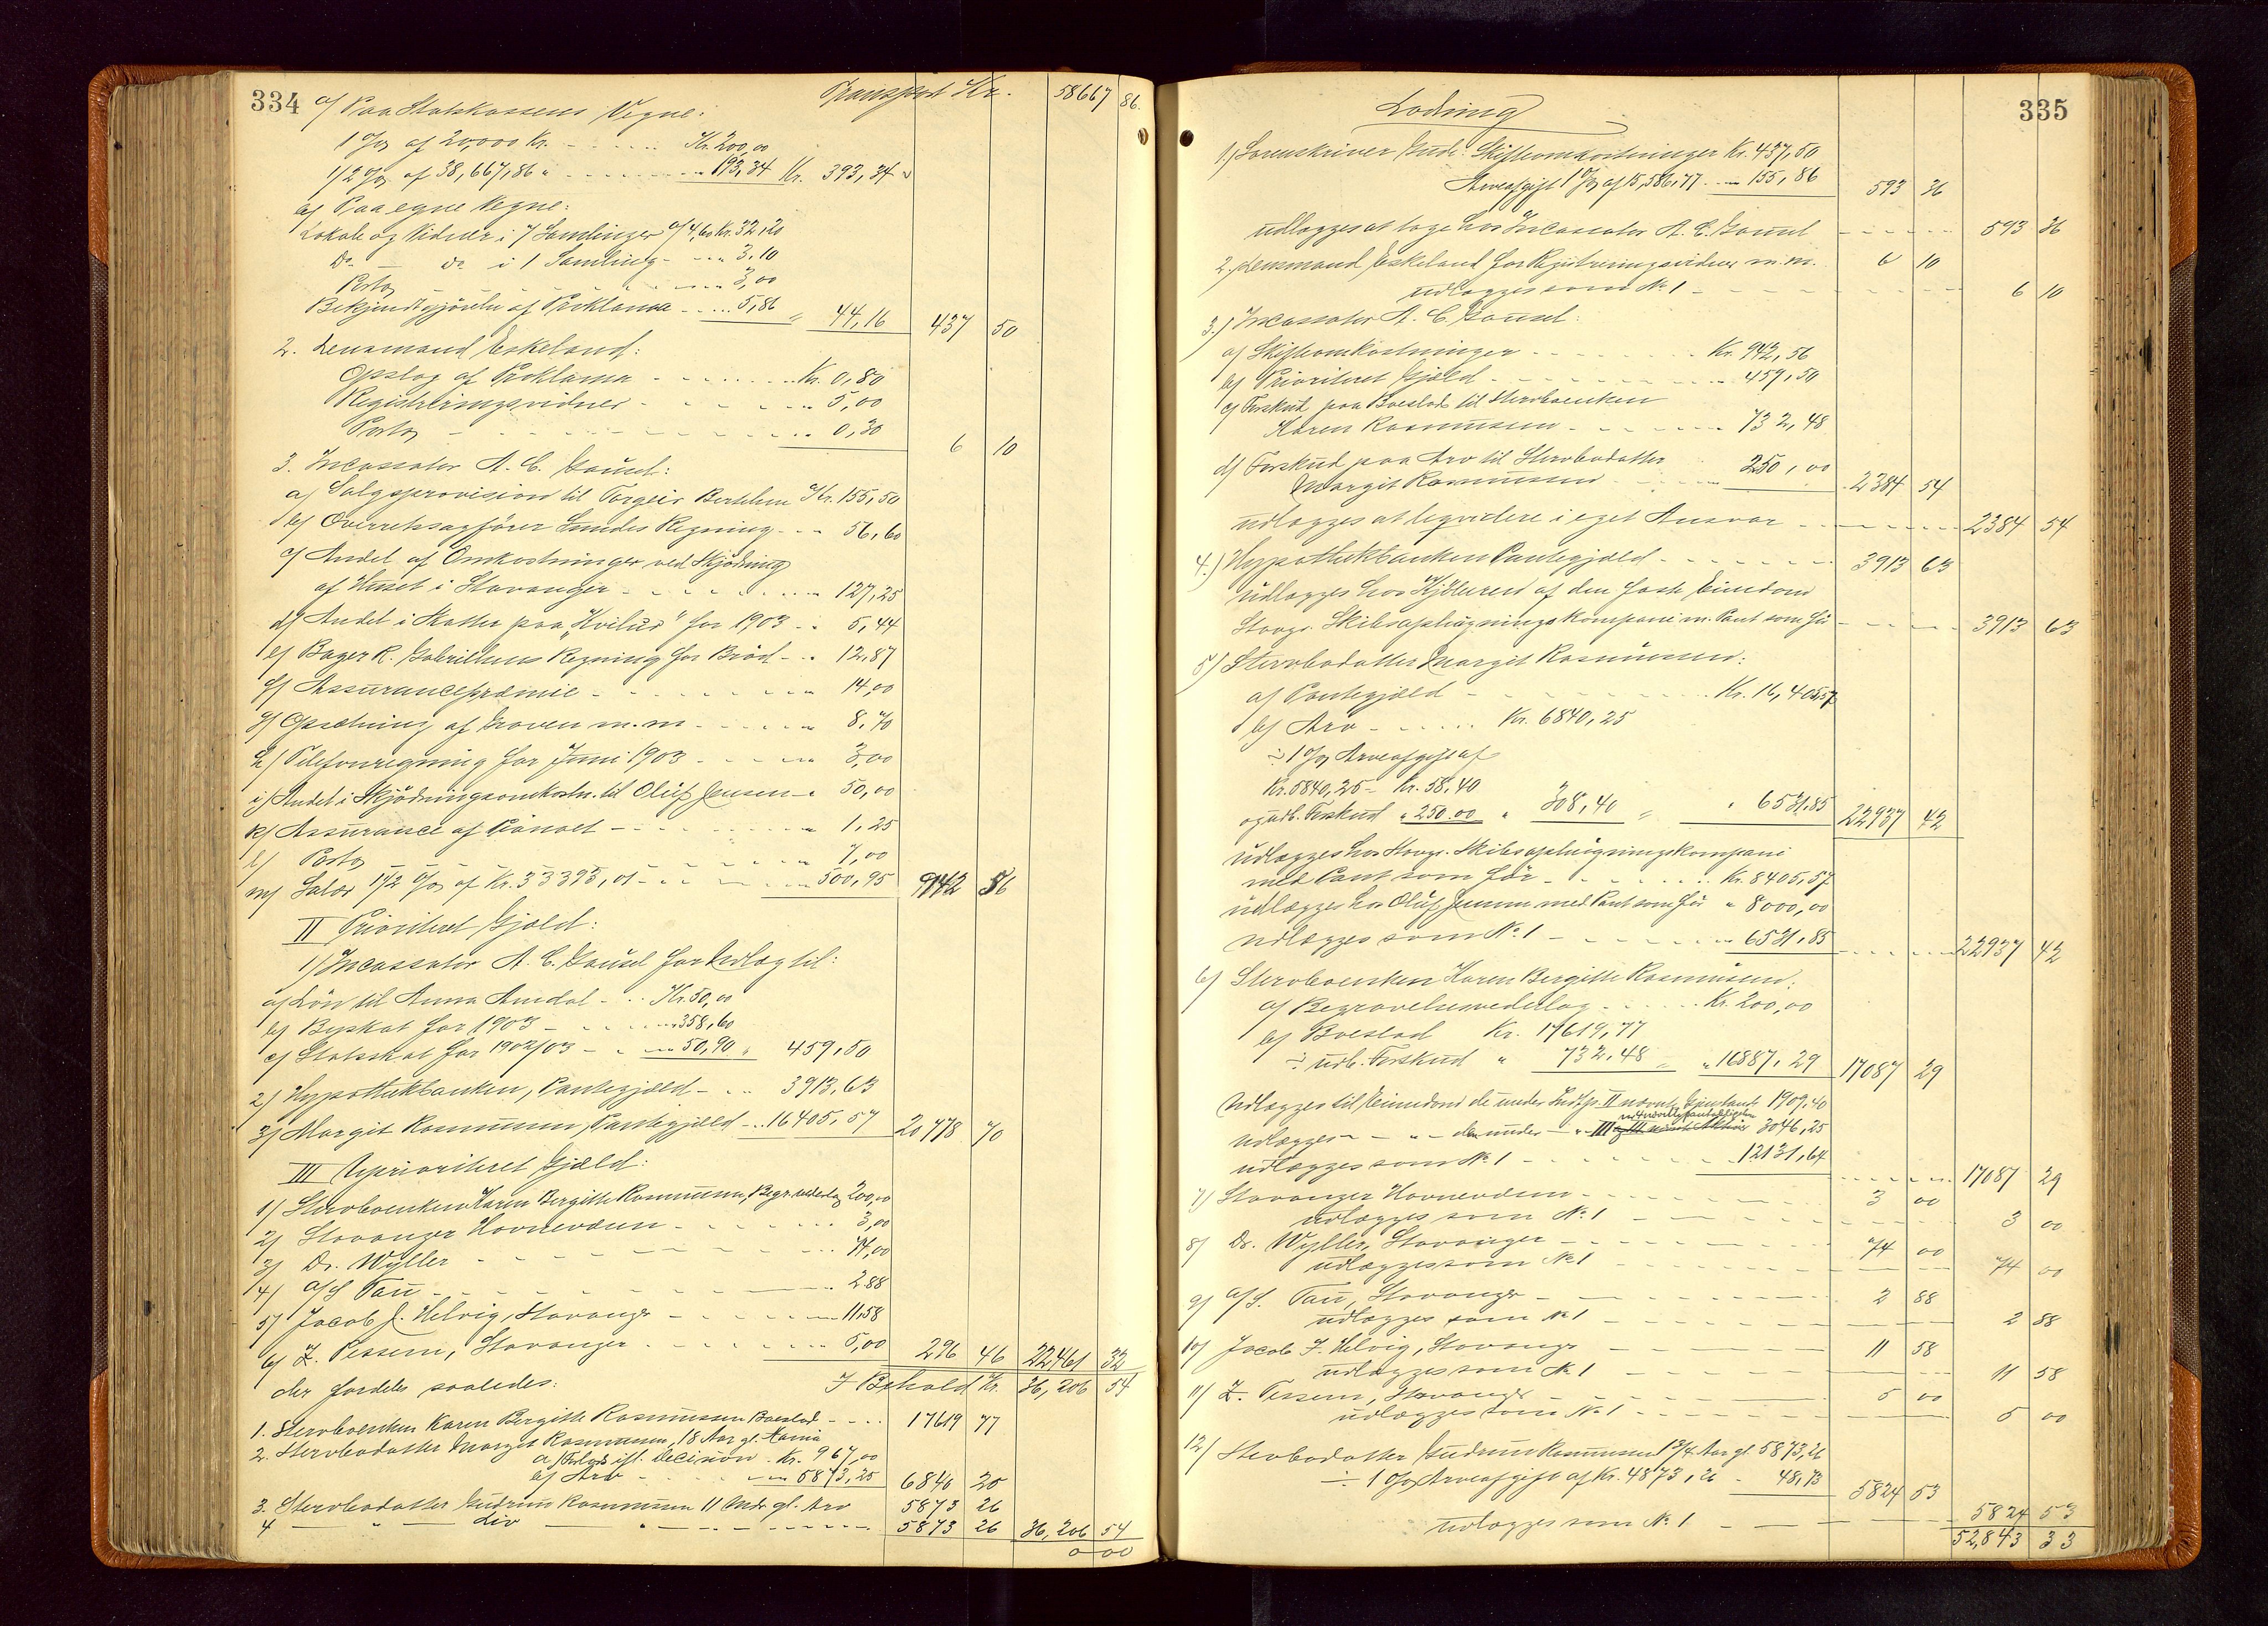 334
a/ Paa Statskassens Vegne: Transport Kr. 58667 86
1 % af 20,000 Kr. - - - Kr. 200,00
1/2 % af 38,667,86 " - - - " 193,34 Kr. 393,34
b/ Paa egne Vegne:
Lokale og Vidner i 7 Samlinger a/ 4,60 Kr. 32,20
Do. - Do. i 1 Samling - - - " 3,10
Porto - - - " 3,00
Bekjendtgjørelse af Proklama - - - 5,86 " 44,16 437 50
2. Lensmand Eskeland:
Opslag af Proklama - - - Kr. 0,80
Registreringsvidner - - - " 5,00
Porto - - - " 0,30 6 10
3. Incassator A. C. Gausel:
a/ Salgsprovision til Torgeir Bertelsen Kr. 155,50
b/ Overretssagfører Lundes Regning - - - 56,60
c/ Andel af Omkostninger ved Skjødning
af Huset i Stavanger - - - " 127,25
d/ Andel i Skatter paa "Hvilud" for 1903 - - 5,44
e/ Bager R. Gabrielsens Regning for Brød - - 12,87
f/ Assurancepræmie - - - " 14,00
g/ Opsætning af Graven m.m - - - " 8,70
h/ Telefonregning for Juni 1903 - - - " 3,00
i/ Andel i Skjødningsomkostn. til Oluf Jensen - " 50,00
k/ Assurance af Pianoet - - - " 1,25
l/ Porto - - - 7,00
m/ Salær 1 1/2 % af Kr. 33393,01 - - - " 500,95 942 56
II Prioriteret Gjæld:
1/ Incassator A. C. Gausel for Udlæg til:
a/ Løn til Anna Amdal - - Kr. 50,00
b/ Byskat for 1903 - - - " 358,60
c/ Statsskat for 1902/03 - - - " 50,90 " 459,50
2/ Hypothekbanken, Pantegjæld - - - 3913,63
3/ Margit Rasmussen, Pantegjæld - - 16405,57 20778 70
III Uprioriteret Gjæld:
1/ Stervboenken Karen Bergitte Rasmussen, Begr. vederlag 200,00
2/ Stavanger Havnevæsen - - - 3,00
3/ Dr. Wyller - - - 74,00
4/ a/S Tau - - - 2.88
5/ Jacob J. Helvig, Stavanger - - - " 11,58
6/ Z. Tessem, Stavanger - - - " 5,00 296 46 22461 32
der fordeles saaledes: I Behold Kr. 36,206 54
1. Stervboenken Karen Bergitte Rasmussen Boeslod - - - 17619 77
2. Stervbodatter Margit Rasmussen, 18 Aar gl.
a/ Forlods ifl. Decision - Kr. 967,00
b/ Arv - - - " 5873,25 6840 25
3. Stervbodatter Gudrun Rasmussen 11 Mdr. gl. Arv 5873 26
4 - " - Liv - " - - - 5873 26 36,206 54
0 00
335
Lodning
1/ Sorenskriver Gude: Skifteomkostninger Kr. 437,50
Arveafgift 1 % af 15,586,77 - - " 155,86 593 36
udlægges at tage hos Incassator A. C. Gausel - - - 593 36
2. Lensmand Eskeland for Registreringsvidner m.m. 6 10
udlægges som No 1 - - - 6 10
3/ Incassator A. C. Gausel:
a/ Skifteomkostninger - - - Kr. 942,56
b/ Prioriteret Gjæld - - - " 459,50
c/ Forskud paa Boeslod til Stervboenken
Karen Rasmussen - - - " 732,48
d/ Forskud paa Arv til Stervbodatter
Margit Rasmussen - - - " 250,00 2384 54
udlægges at liqvidere i eget Ansvar - - - 2384 54
4/ Hypothekbanken Pantegjæld - - - 3913 63
udlægges hos Kjøberen af den faste Eiendom
Stavgr. Skibsophugningskompani m. Pant som før - - - 3913 63
5/ Stervbodatter Margit Rasmussen:
a/ Pantegjæld - - - Kr. 16,405,57
b/ Arv - - - Kr. 6840,25
÷ 1 % Arveafgift af
Kr. 5840,25 - Kr. 58,40
og udb. Forskud " 250.00 " 308,40 = " 6531,85 22937 42
udlægges hos Stavgr. Skibsophugningskompani
med Pant som før - - - Kr. 8405,57
udlægges hos Oluf Jensen med Pant som før " 8000,00
udlægges som No 1 - - - " 6531,85 - - - 22937 42
6/ Stervboenken Karen Bergitte Rasmussen:
a/ Begravelsesvederlag - - - Kr. 200,00
b/ Boeslod Kr. 17619,77
÷ udb. Forskud " 732,48 = " 16887,29 17087 29
Udlægges til Eiendom de under Indtgs. II nævnte Gjenstand. 1909,40
udlægges - " - de under - " - III 3046,25
udlægges som No 1 - - - 12131,64 - - - 17087 29
7/ Stavanger Havnevæsen - - - 3 00
udlægges som No 1 - - - 3 00
8/ Dr. Wyller, Stavanger - - - 74 00
udlægges som No 1 - - - 74 00
9/ a/S. Tau, Stavanger - - - 2 88
udlægges som No 1 - - - 2 88
10/ Jacob J. Helvig, Stavanger - - - 11 58
udlægges som No 1 - - - 11 58
11/ Z. Tessem, Stavanger - - - 5 00
udlægges som No 1 - - - 5 00
12/ Stervbodatter Gudrun Rasmussen 1 3/4 Aar gl. 5873,26
÷ 1 % Arveafgift af Kr. 4873,26 - 48,73 5824 53
udlægges som No 1 - - - 5824 53
52,843 33